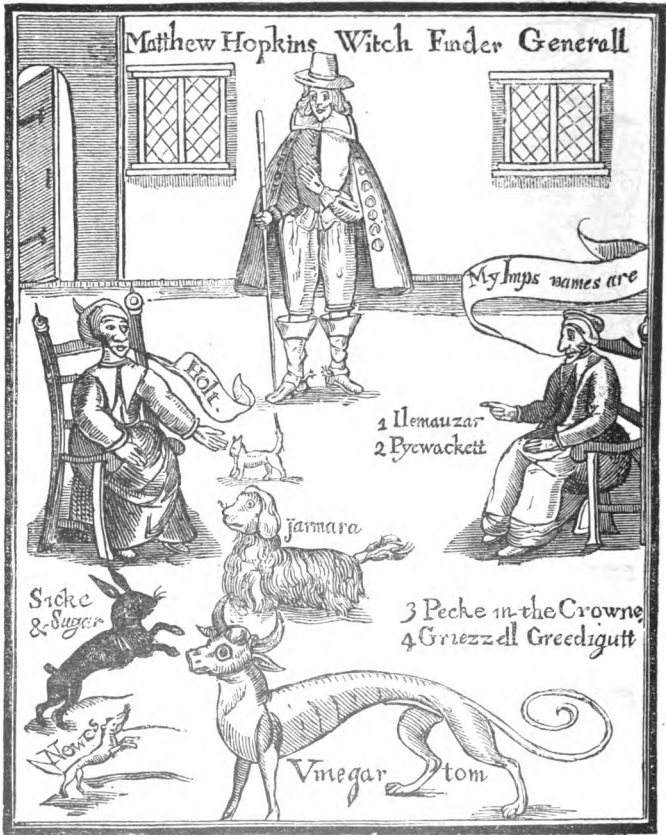 Matthew Hopkins Witch Finder Generall
My Imps names are
Holt.
1 Ilemauzar
2 Pyewackett
jarmara
Sicke
& Sugar
3 Pecke in the Crowne,
4 Griezzell Greedigutt
Newes
Vinegar tom